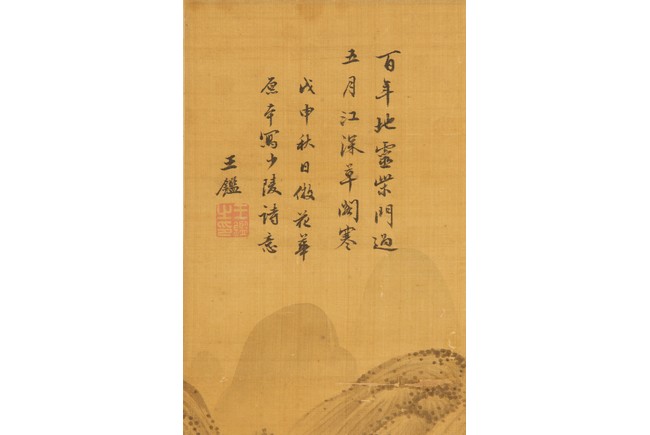 百年地靈柴門過
五月江深草閣寒
戊申秋日倣范華
原本寫少陵詩意
王鑑